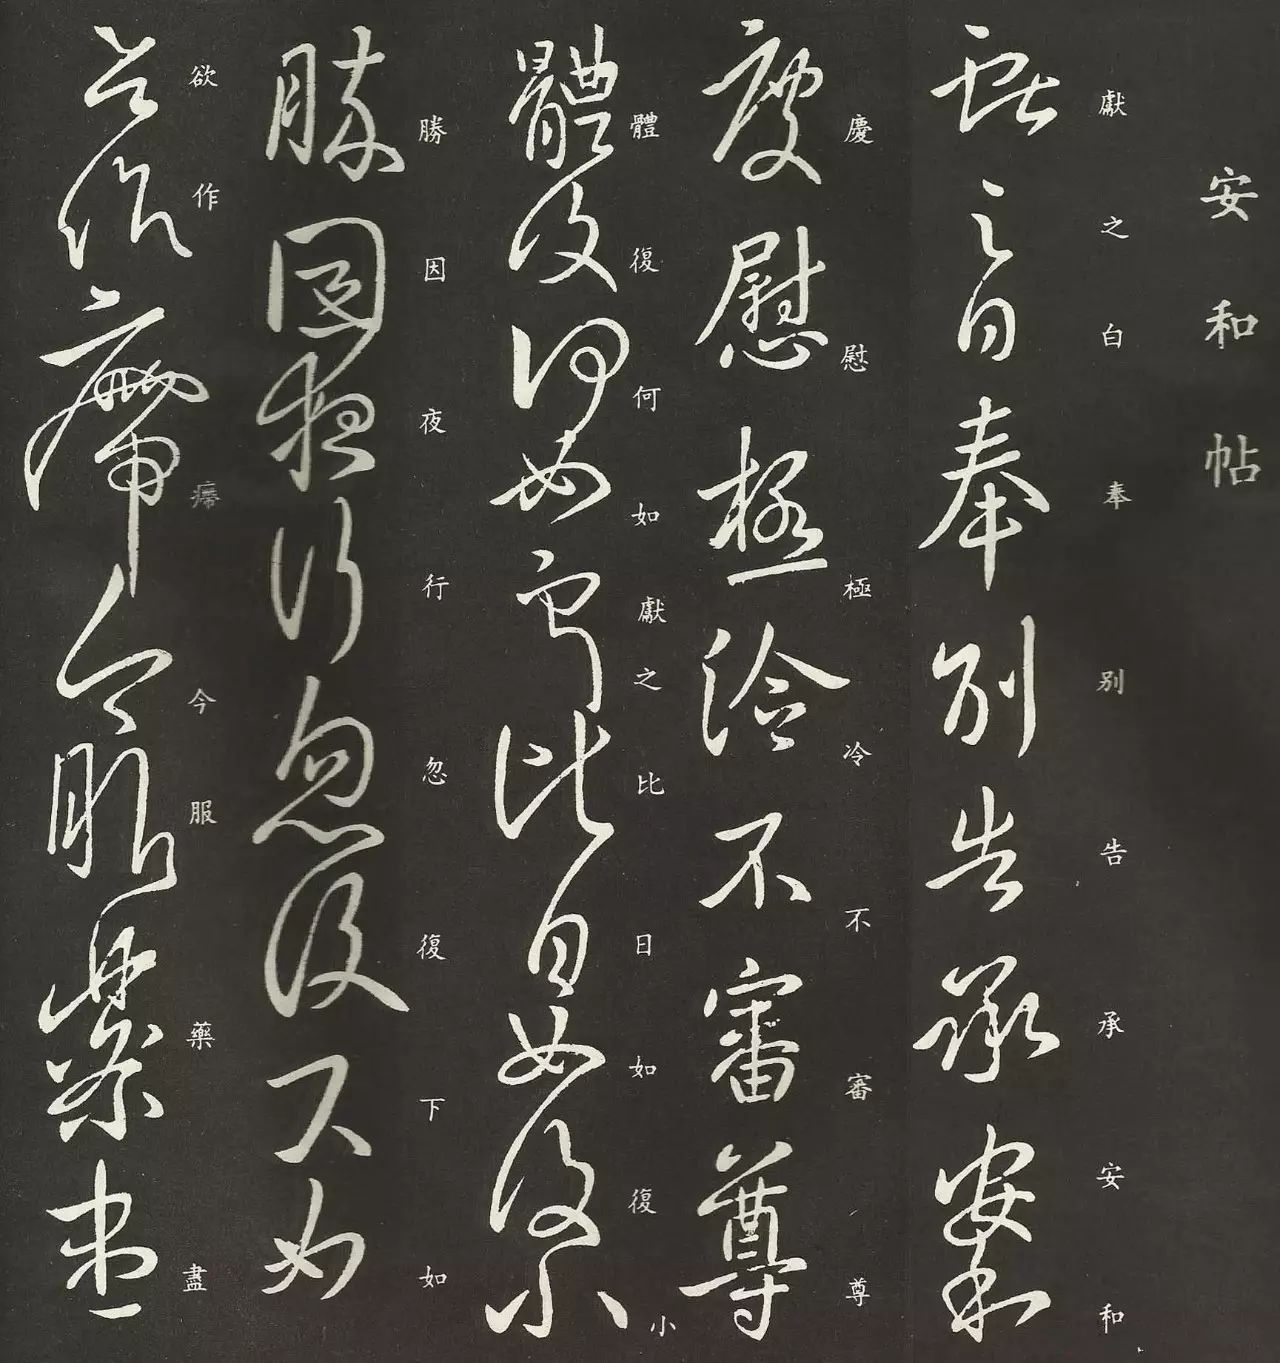 安和帖
獻之白奉別告承安和
慶慰極冷不審尊
體復何如獻之比日如復小
勝因夜行忽復下如
欲作㿃今服藥盡